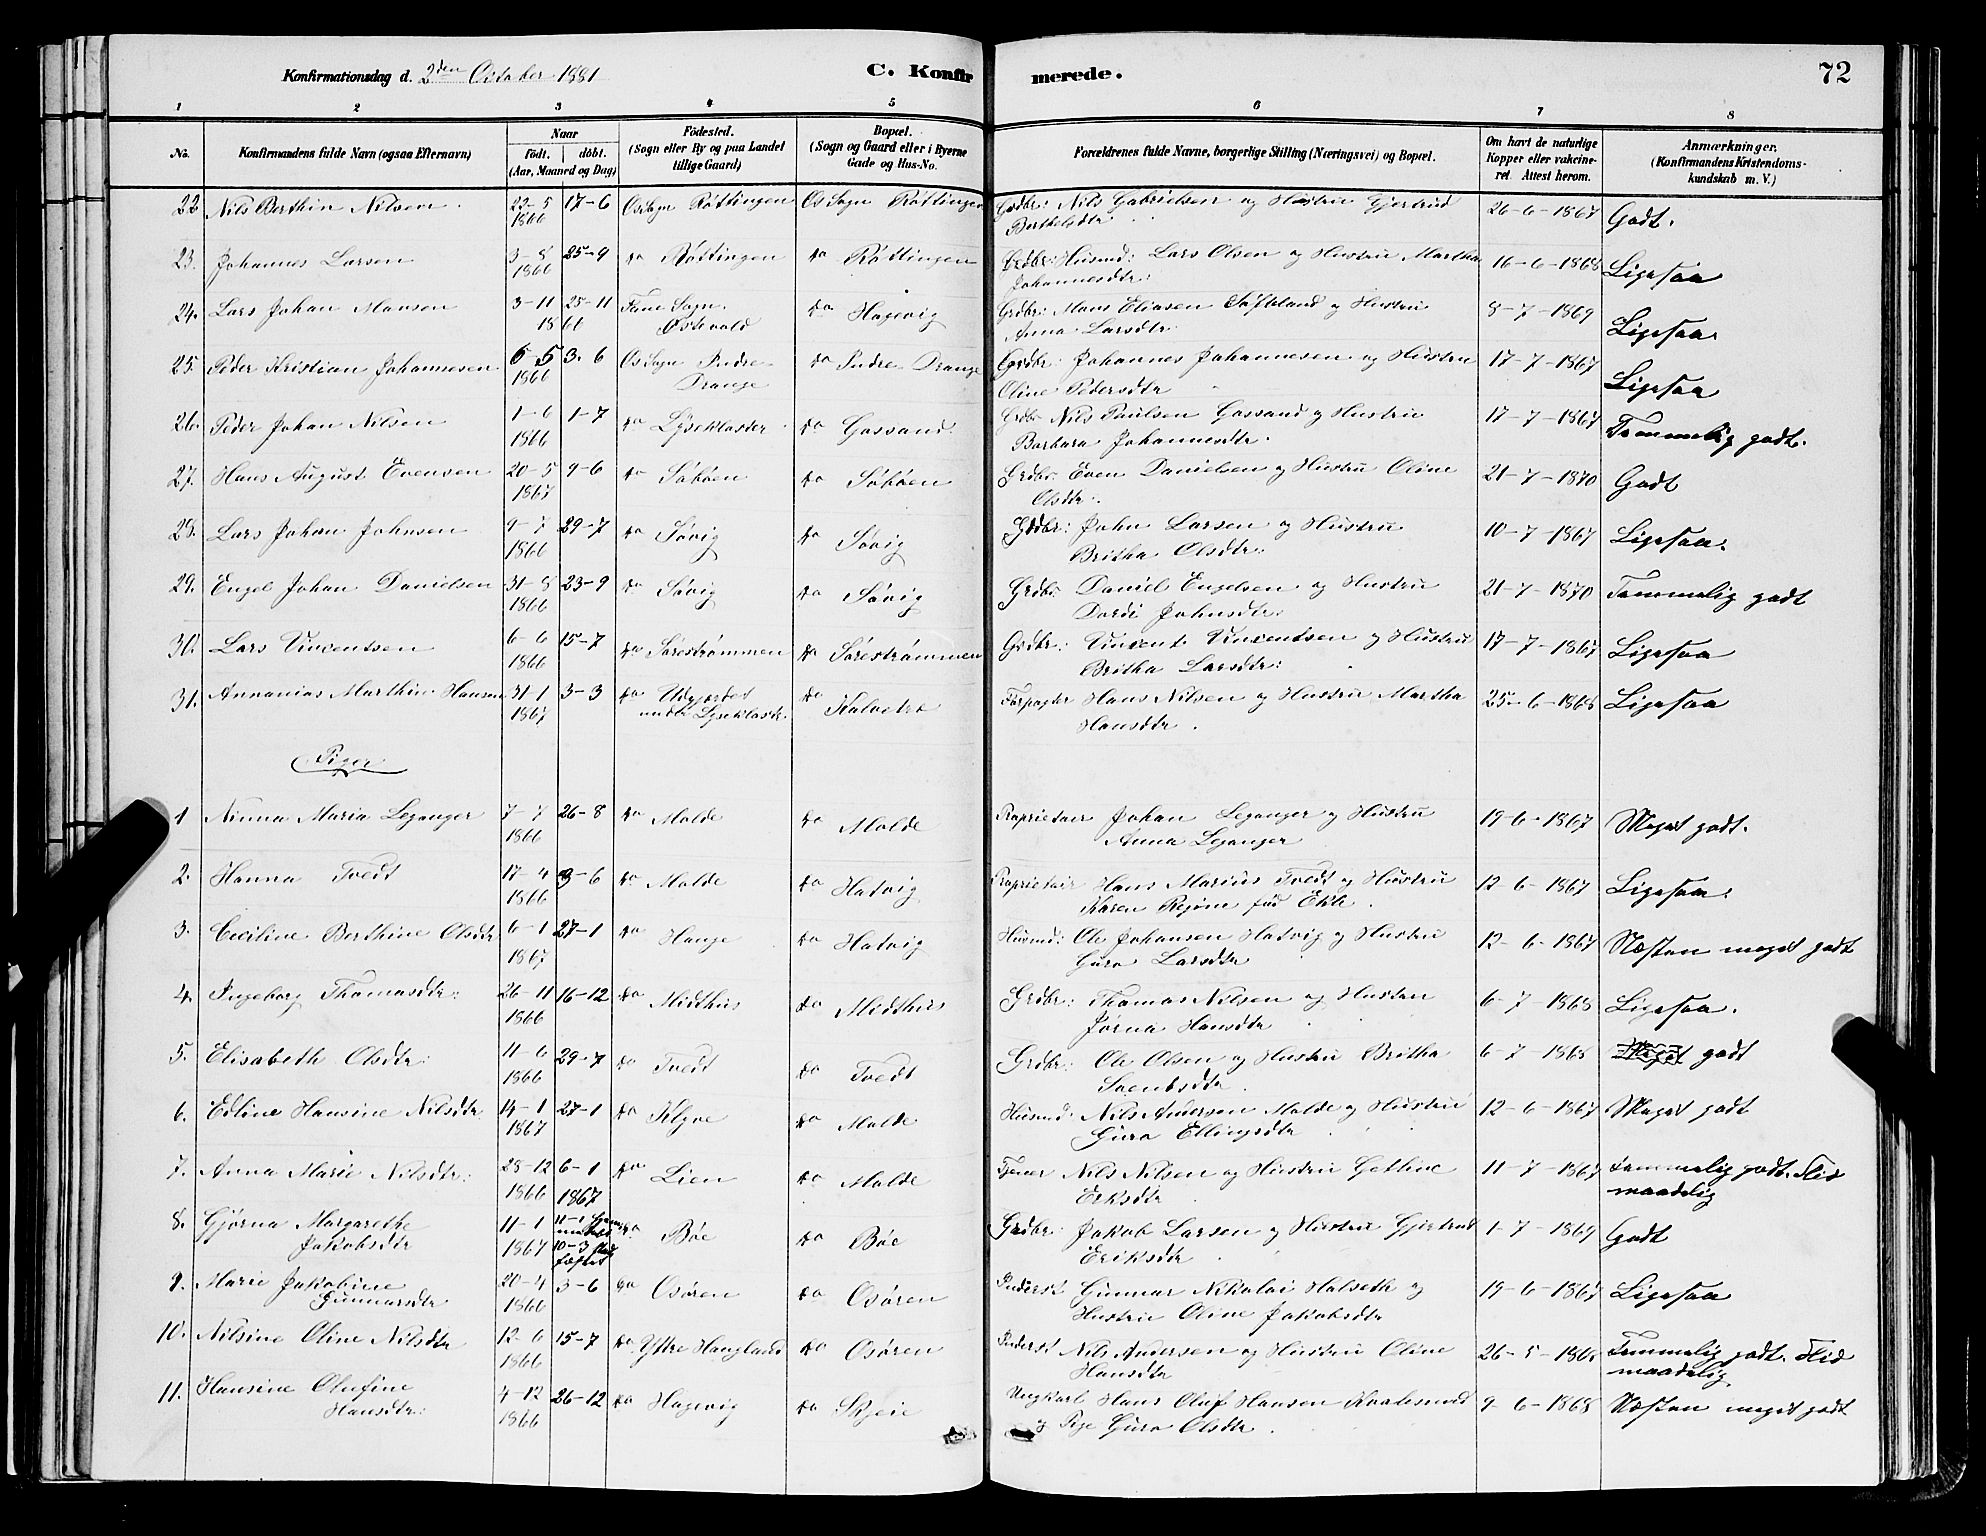 Konfirmationsdag d. 2den October 1881 C. Konfirmerede. 72
1 2 3 4 5 6 7 8
No. Konfirmandens fulde Navn (ogsaa Efternavn) Naar födt. döbt. (Aar, Maaned og Dag) Födested. (Sogn eller By og paa Landet tillige Gaard) Bopæl. (Sogn og Gaard eller i Byerne Gade og Hus-No. Forældrenes fulde Navne, borgerlige Stilling (Næringsvei) og Bopæl. Om havt de naturlige Kopper eller vakcineret. Attest herom. Anmærkninger. (Konfirmandens Kristendomskundskab m. V.)
22 Nils Berthin Nilsen 22-5 1866 17-6 Os Sogn Røttingen Os Sogn Røttingen Grdbr: Nils Gabrielsen og Hustru Gjertrud Berthelsdtr 26-6-1867 Godt.
23. Johannes Larsen 3-8 1866 25-9 do Røttingen do Røttingen Husmd: Lars Olsen og Hustru Martha Johannesdtr: 16-6-1868 Ligesaa
24. Lars Johan Monsen 3-11 1866 25-11 Fane Sogn Østevold do Hagevig Grdbr: Mons Eliasen og Hustru Anna Larsdtr: 8-7-1869 Ligesaa.
25. Peder Kristian Johannesen 6-5 1866 3-6 Os Sogn Indre Drange do Indre Drange Grdbr: Johannes Johannesen og Hustru Oline Pedersdtr 17-7-1867 Ligesaa
26. Peder Johan Nilsen 1-6 1866 1-7 do Lyseklaster do Gassand Grdbr Nils Paulsen Gassand og Hustru Barbara Johannesdtr. 17-7-1867 Temmelig godt.
27. Hans August Evensen 20-5 1867 9-6 do Søbøen do Søbøen Grdbr. Even Danielsen og Hustru Oline Olsdtr. 21-7-1870 Godt
28. Lars Johan Johnsen 9-7 1866 29-7 do Søvig do Søvig Grdbr: John Larsen og Hustru Britha Olsdtr: 10-7-1867 Ligesaa.
29. Engel Johan Danielsen 31-8 1866 23-9 do Søvig do Søvig Grdbr. Daniel Engelsen og Hustru Dordi Johnsdtr: 21-7-1870 Temmelig godt
30. Lars Vincentsen 6-6 1866 15-7 do Sørestrømmen do Sørestrømmen Grdbr: Vincent Vincentsen og Hustru Britha Larsdtr: 17-7-1867 Ligesaa
31. Annanias Marthin Hansen 31-1 1867 3-3 do under Lyseklastr. do Kalvetræ Forpagter Hans Nilsen og Hustru Martha Hansdtr. 25-6-1868 Ligesaa
Piger
1 Ninna Maria Leganger 7-7 1866 26-8 do Molde do Molde Proprietair Johan Leganger og Hustru Anna Leganger 19-6-1867 Meget godt.
2. Hanna Tvedt 17-4 1866 3-6 do Molde do Hatvig Proprietair Hans Marius Tvedt og Hustru Karen Regine født 12-6-1867 Ligesaa.
3. Ceciline Berthine Olsdtr 6-1 1867 27-1 do Hauge do Hatvig Husmd: Ole Johansen Hatvig og Hustru Guro Larsdtr 12-6-1867 Næsten meget godt
4. Ingeborg Thomasdtr: 26-11 1866 16-12 do Midthus do Midthus Grdbr: Thomas Nilsen og Hustru Jørna Hansdtr 6-7-1868 Ligesaa.
5. Elisabeth Olsdtr: 11-6 1866 29-7 do Tvedt do Tvedt Grdbr: Ole Olsen og Hustru Britha 6-7-1868 Meget godt
6. Edline Hansine Nilsdtr 14-1 1867 27-1 do Klyve do Molde Husmd: Nils Andersen Molde og Hustru Guro Ellingsdtr 12-6-1867 Meget godt
7. Anna Marie Nilsdtr: 28-12 1866 6-1 1867 do Lien do Molde Tjener Nils Nilsen og Hustru Gitline Eriksdtr 11-7-1867 Temmelig godt. Flid maadelig
8. Gjørna Margarethe Jakobsdtr 11-1 1867 11-1 10-3 do Bøe do Bøe Grdbr: Jakob Larsen og Hustru Gjertrud Eriksdtr 1-7-1869 Godt
9. Marie Jakobine Gunnarsdtr 20-4 1866 3-6 do Osøren do Osøren Inderst Gunnar Nikolai Halseth og Hustru Oline Jakobsdtr 19-6-1867 Ligesaa
10. Nilsine Oline Nilsdtr 12-6 1866 15-7 do Yttre Haugland do Osøren Inderst Nils Andersen og Hustru Oline Hansdtr 26-5-1868 Temmelig godt. Flid maadelig
11. Hansine Olufine Hansdtr: 4-12 1866 26-12 do Hagevig do Skjeie Ungkarl Hans Oluf Hansen og Pige Guro Olsdtr. 9-6-1868 Næsten meget godt